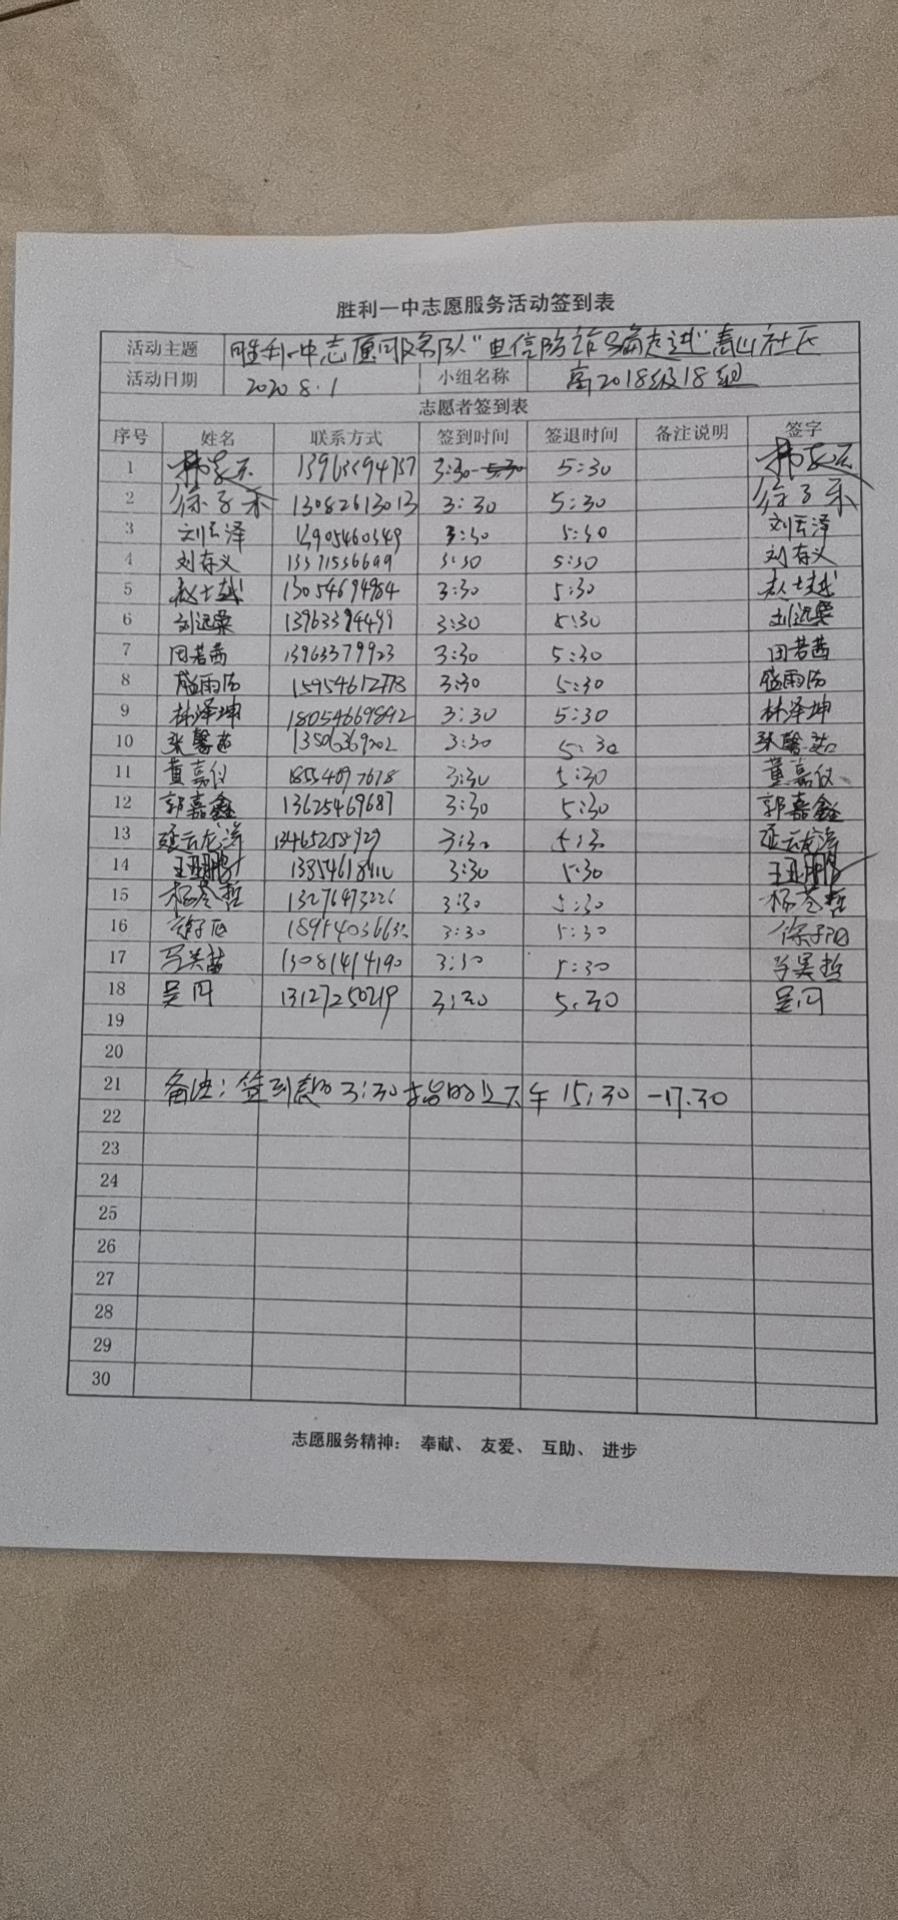 胜利一中志愿服务活动签到表
活动主题 胜利一中志愿服务队"电信防诈骗走进"泰山社区
活动日期 2020 8.1 小组名称 高2018级18组
志愿者签到表
序号 姓名 联系方式 签到时间 签退时间 备注说明 签字
1 3:30 5:30
2 徐子禾 13082613013 3:30 5:30 徐子禾
3 刘云泽 3:30 5:30 刘云泽
4 刘存义 3:30 5:30 刘存义
5 赵士越 13054694984 3:30 5:30 赵士越
6 刘远栗 13963394499 3:30 5:30 刘远栗
7 田若茜 13963379923 3:30 5:30 田若茜
8 3:30 5:30
9 林泽坤 18054669892 3:30 5:30 林泽坤
10 3:30 5:30
11 董嘉仪 18554097618 3:30 5:30 董嘉仪
12 郭嘉鑫 13625469687 3:30 5:30 郭嘉鑫
13 13465258929 3:30 5:30
14 3:30 5:30
15 13276473226 3:30 5:30
16 3:30 5:30
17 13081414190 3:30 5:30
18 吴冈 13127250219 3:30 5:30 吴冈
19
20
21 备注:签到表的3:30指的是下午15:30-17.30
22
23
24
25
26
27
28
29
30
志愿服务精神: 奉献、 友爱、 互助、 进步